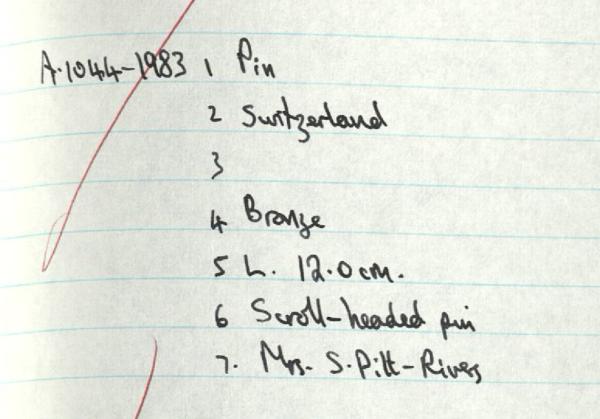 A.1044-1983 1 Pin
2 Switzerland
3
4 Bronze
5 L. 12.0cm.
6 Scroll-headed pin
7. Mrs. S. Pitt-Rivers